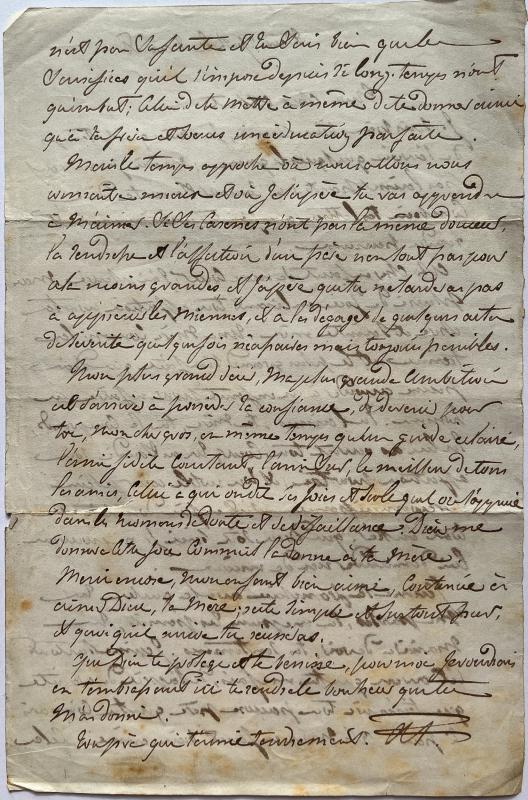 n'est pas Suffisante et tu Sais bien que les
Sacrifices qu'il s'impose depuis si long temps n'ont
qu'un but; Celui de te mettre à même de te donner ainsi
qu'à ta frère et Sœurs une éducation parfaite.
Mais le temps approche où nous allons nous
connaître mieux et où j'espère tu vas apprendre
à m'aimer. Si les Caresses n'ont pas la même douceur,
la tendresse et l'affection d'un père n'en sont pas pour
cela moins grandes et j'espère que tu ne tarderas pas
à apprécier les miennes, et à les dégager de quelques actes
de Sévérité quelquefois nécessaires mais toujours pénibles.
Mon plus grand désir, Ma plus grande Ambition
est d'arriver à posséder ta confiance, de devenir pour
toi, Mon cher gros, en même temps qu'un guide éclairé,
l'ami fidèle constant, l'ami Sûr, le meilleur de tous
les amis, Celui à qui on dit Ses joies et Sur lequel on s'appuie
dans les moments de doute et de défaillance. Dieu me
donne cette force Comme il l'a donné à ta Mère
Merci encore, Mon enfant bien aimé, Continue à
aimer Dieu, ta Mère, reste Simple et Surtout pur,
et quoiqu'il arrive tu réussiras.
Que Dieu te protège et te bénisse, pour moi Je voudrais
en t'embrassant ici te rendre le bonheur que tu
M'as donné.
Ton père qui t'aime tendrement.